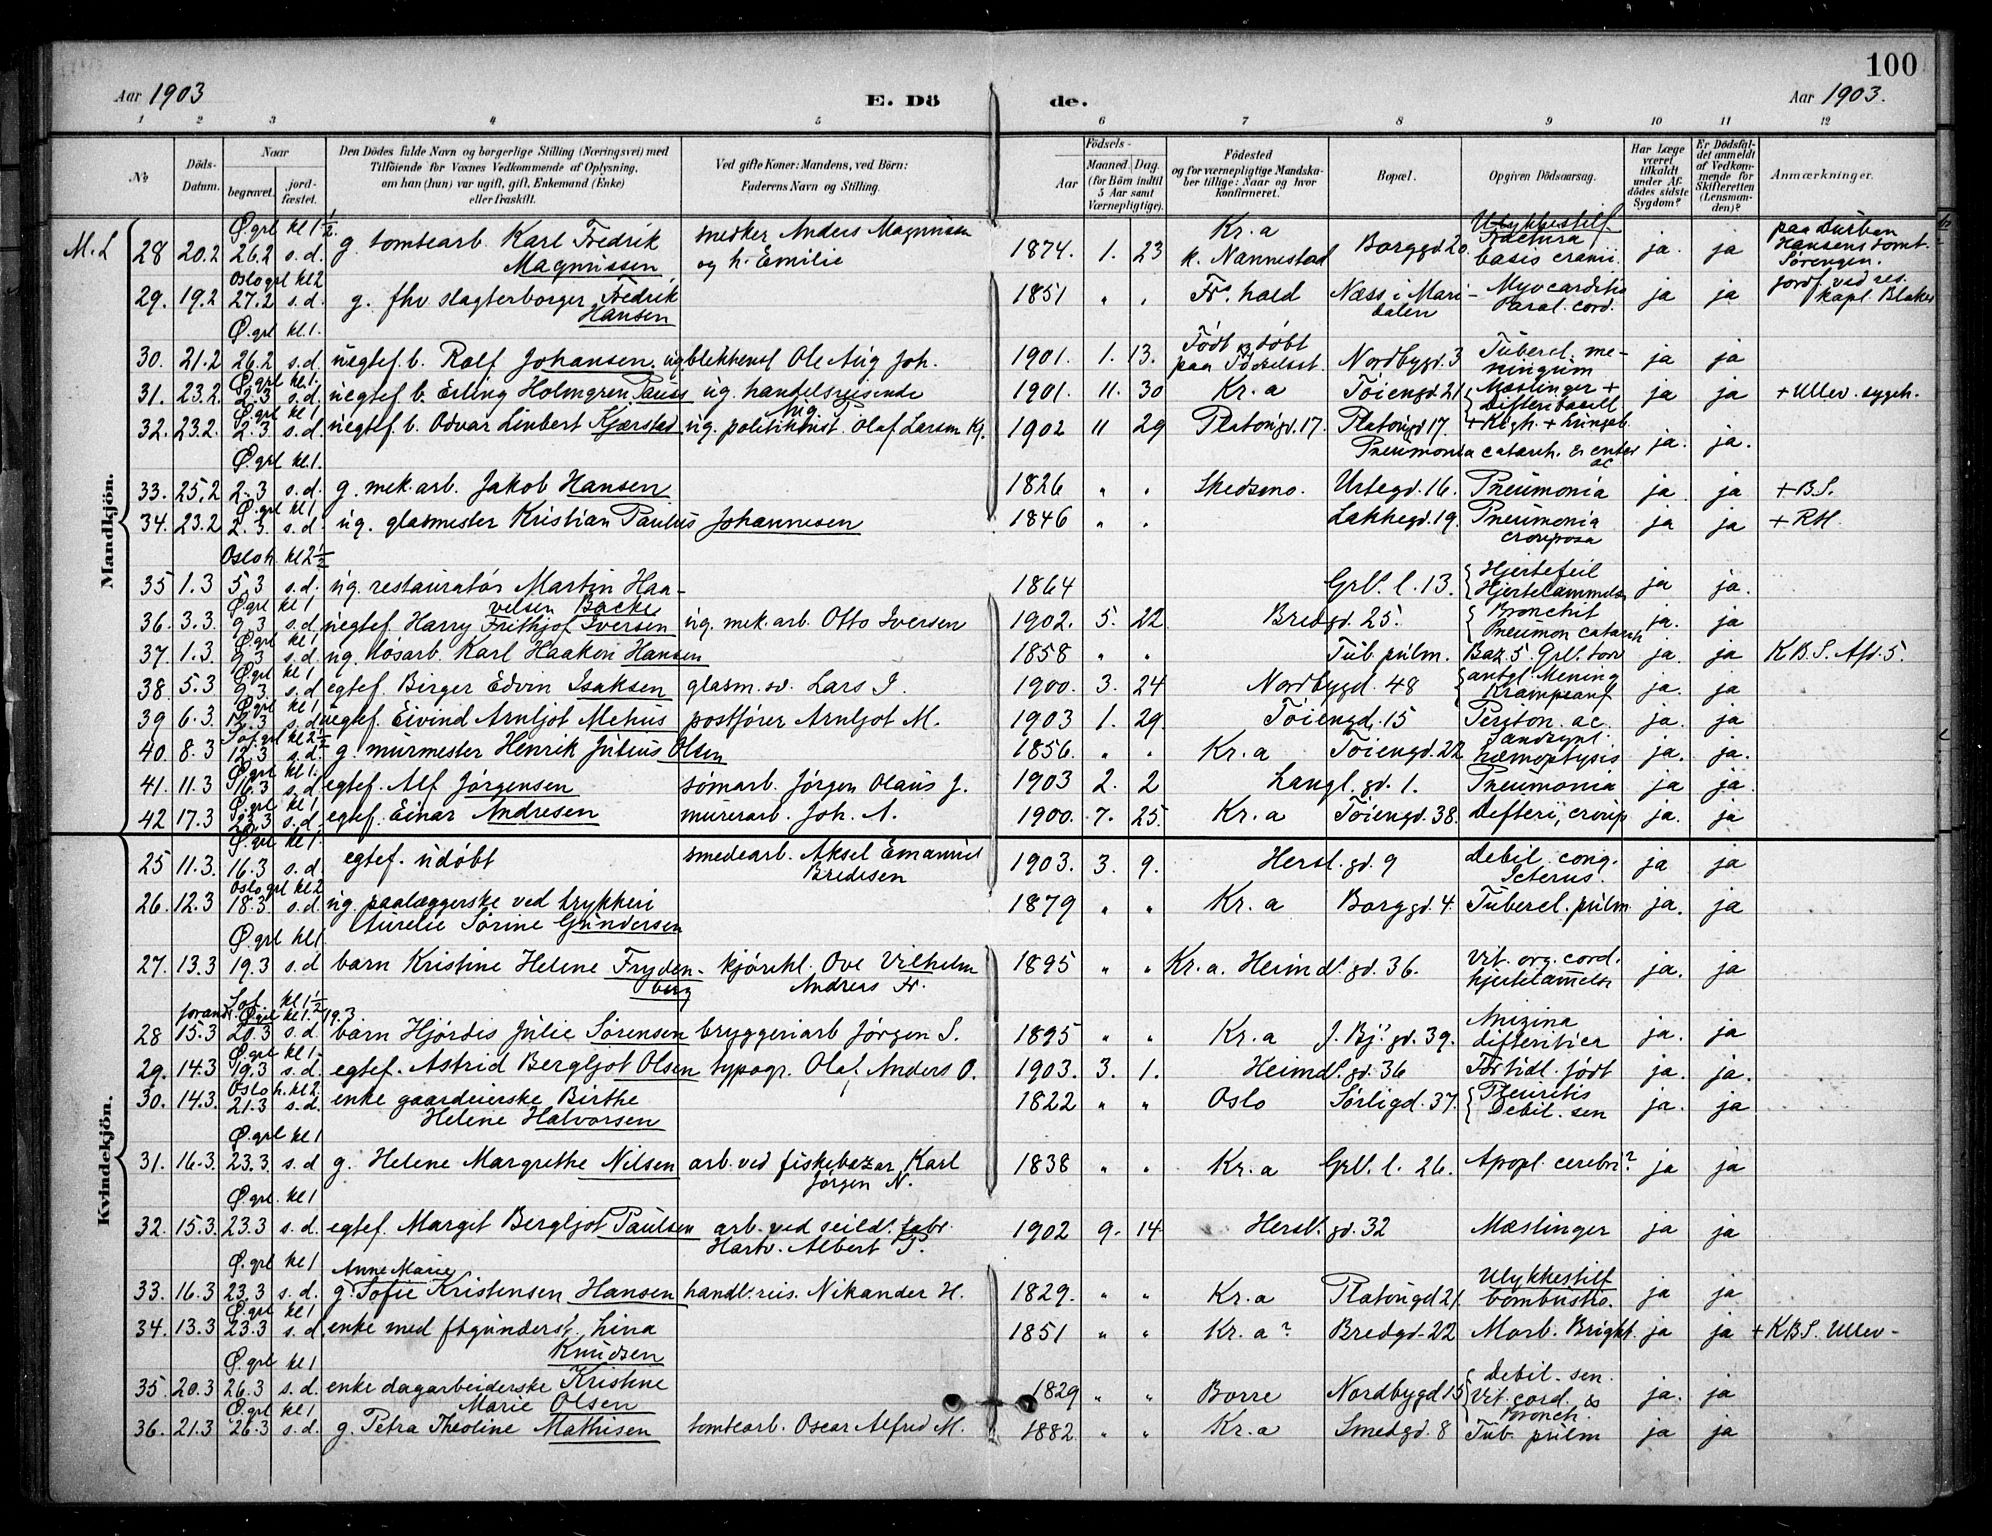 100
Aar 1903
E. Dö de.
Aar 1903.
1 2 3 4 5 6 7 8 9 10 11 12
No
Döds-Datum.
Naar
begravet.
jord-fæstet.
Den Dödes fulde Navn og borgerlige Stilling (Næringsvei) med
Tilföiende for Voxnes Vedkommende af Oplysning,
om han (hun) var ugift, gift, Enkemand (Enke)
eller fraskilt.
Ved gifte Koner: Mandens, ved Börn:
Faderens Navn og Stilling.
Födsels-
Aar
Maaned.
Dag.
(for Börn indtil
5 Aar samt
Værnepligtige).
Födested
og for værnepligtige Mandska-
ber tillige: Naar og hvor
konfirmeret.
Bopæl.
Opgiven Dödsaarsag.
Har Læge
været
tilkaldt
under Af-
dödes sidste
Sygdom?
Er Dödsfal-
det anmeldt
af Vedkom-
mende for
Skifteretten
(Lensman-
den)?
Anmærkninger.
Mandkjön.
Ø. grl kl 1½.
M. L 28 20.2 26.2 s.d. g. tomtearb. Karl Fredrik Magnussen snedker Anders Magnussen og h. Emilie 1874. 1. 23 Kr. a k. Nannestad Borggd 20. Ulykkestilf Fractura basis cranii. ja. ja paa Durban Hansens tomt. Sørengen.
Oslo grl kl 2
29. 19.2 27.2 s.d. g. fhv slagterborger Fredrik Hansen 1851 " " Fr. hald Næss i Maridalen Myocarditis Paral. cord. ja ja jordf. ved res. kapl. Blakes
Ø. grl kl 1.
30. 21.2 26.2 s.d. uegtef. b. Rolf Johansen. ug blikkensl Ole Aug Joh. 1901. 1. 13. Født & døbt paa Fødselsst. Nordbygd. 3 Tubercl. meningium ja ja
Ø. grl kl 1.
31. 23.2. 2.3 s.d. uegtef. b. Erling Holmgren Pauss ug. handelsreisende 1901. 11. 30 Kr. a Tøiengd. 21 Mæslinger + Difteribacill ja ja + Ullev. sygeh.
Ø. grl kl 1
32. 23.2. 2.3 s.d. uegtef. b. Odvar Linbert Kjærstad ug. politikonst Olaf Larsen Kj. 1902 11 29 Platougd. 17. Platougd 17. Pneumonia catarrh. & enter ac ja. ja.
Ø. grl kl 1.
33. 25.2 2.3 s.d. g. mek. arb. Jakob Hansen 1826 " " Skedsmo. Urtegd. 16. Pneumonia ja. ja. + B.S.
Ø. grl kl 1
34. 23.2 2.3. s.d. ug. glasmester Kristian Paulus Johannesen 1846 " " Lakkegd. 19. Pneumonia crouposa ja ja + RH.
Oslo h. kl 2½
35 1.3 5.3 s.d. ug. restauratør Martin Haavelsen Backe 1864 Grl. l. 13. Hjertefeil Hjertelammelse ja ja.
Ø. grl kl 1
36. 3.3. 9.3 s.d uegtef. Harry Frithjof Iversen ug. mek. arb. Otto Iversen 1902. 5. 22 Bredgd. 25. Bronchit Pneumon catarrh ja. ja
Ø. grl kl 1
37. 1.3. 9.3 s.d. ug. løsarb. Karl Haaken Hansen 1858 " " Tub. pulm. Baz. 5. Grl. torv ja. ja K.B.S. Afd. 5.
Ø. grl kl 1
38. 5.3 9.3. s.d. egtef. Birger Edvin Isaksen glasm. sv. Lars I. 1900. 3. 24 Nordbygd. 48 antgl. Mening Krampeanf ja. ja
Ø. grl kl 1.
39 6.3. 12.3 s.d. uegtef. Eivind Arnljot Mehus postfører Arnljot M. 1903 1. 29. Tøiengd. 15 Periton. ac. ja. ja
Sof. grl kl 2½
40. 8.3 12.3 s.d. g. murmester Henrik Julius Olsen 1856. " " Kr. a Tøiengd. 22 hæmoptysis ja. ja.
Ø. grl kl 1.
41. 11.3 16.3 s.d. egtef. Alf Jørgensen sømarb. Jørgen Olaus J. 1903 2. 2 Langl. gd. 1. Pneumonia ja ja.
Ø. grl kl 1
42 17.3 23.3 s.d. egtef. Einar Andresen murerarb. Joh. A. 1900. 7. 25. Kr. a Tøiengd. 38. Difteri, croup ja. ja
Kvindekjön.
Ø. grl kl 1.
25 11.3. 16.3 s.d. egtef. udøbt smedearb. Aksel Emanuel Bredesen 1903. 3. 9. Hersl. gd. 9 Debil. cong. Icterus. ja ja
Oslo grl kl 2
26. 12.3 18.3. s.d. ug. paalæggerske ved trykkeri Aurelie Sørine Gundersen 1879 " " Kr. a Borggd. 4. Tubercl. pulm ja. ja
Ø. grl kl 1
27. 13.3 19.3 s.d barn Kristine Helene Frydenberg kjørekl. Ove Vilhelm Andreas Fr. 1895 " " Kr. a. Heimd. gd. 36. Vit. org. cord. hjertelammelse ja. ja
Sof. kl 1½ forand. Ø. grl kl 1. 19.3
28 15.3 20.3 s.d. barn Hjørdis Julie Sørensen bryggeriarb Jørgen S. 1895 " " Kr. a J. Bj. gd. 39. difteritier ja. ja
Ø. grl kl 1
29. 14.3 19.3 s.d. egtef. Astrid Bergljot Olsen typogr. Olaf Anders O. 1903. 3. 1. Heimd. gd. 36 Førtidl. født ja. ja.
Oslo h. kl 2
30. 14.3. 21.3 s.d. enke gaardeierske Birthe Helene Halvorsen 1822 " " Oslo Sørligd. 37. Pleuritis Debil. sen ja. ja
Ø. grl kl 1
31. 16.3. 23.3. s.d g. Helene Margrethe Nilsen arb. ved fiskebazar Karl Jørgen N. 1838 " " Kr. a Grl. l. 26. Apopl. cerebri? ja ja
Ø. grl. kl 1
32. 15.3. 23.3 s.d. egtef. Margit Bergljot Paulsen arb. ved seild. fabr. Hartv. Albert P. 1902 9. 14 Hersl. gd. 32 Mæslinger ja ja
Ø. grl kl 1
33. 16.3 23.3 s.d. g. Anne Marie Sofie Kristensen Hansen handl. reis. Nikander H. 1829. " " Kr. a Platougd 21. Ulykkestilf combustio. ja ja
Ø. grl kl 1
34. 13.3 23.3 s.d. enke med ftgunderst. Lina Knudsen 1851 " " Kr. a? Bredgd. 22 Morb. Bright. ja ja + K.B.S. Ullev-
Ø. grl kl 1
35 20.3 26.3 s.d. enke dagarbeiderske Kristine Marie Olsen 1829 " " Borre Nordbygd 15 Debil. sen. Vit. cord. & Bronch. ja. ja
Ø. grl kl 1
36. 21.3 26.3 s.d. g. Petra Theoline Mathisen tomtearb. Oscar Alfred M. 1882 " " Kr. a Smedgd. 8 Tub. pulm ja ja